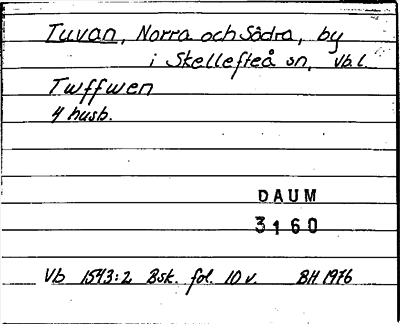 Tuvan, Norra och Södra, by
i Skellefteå sn, Vb l.
Twffwen
4 husb.
DAUM
3160
Vb 1543:2 Bsk. fol. 10 v. BH 1976